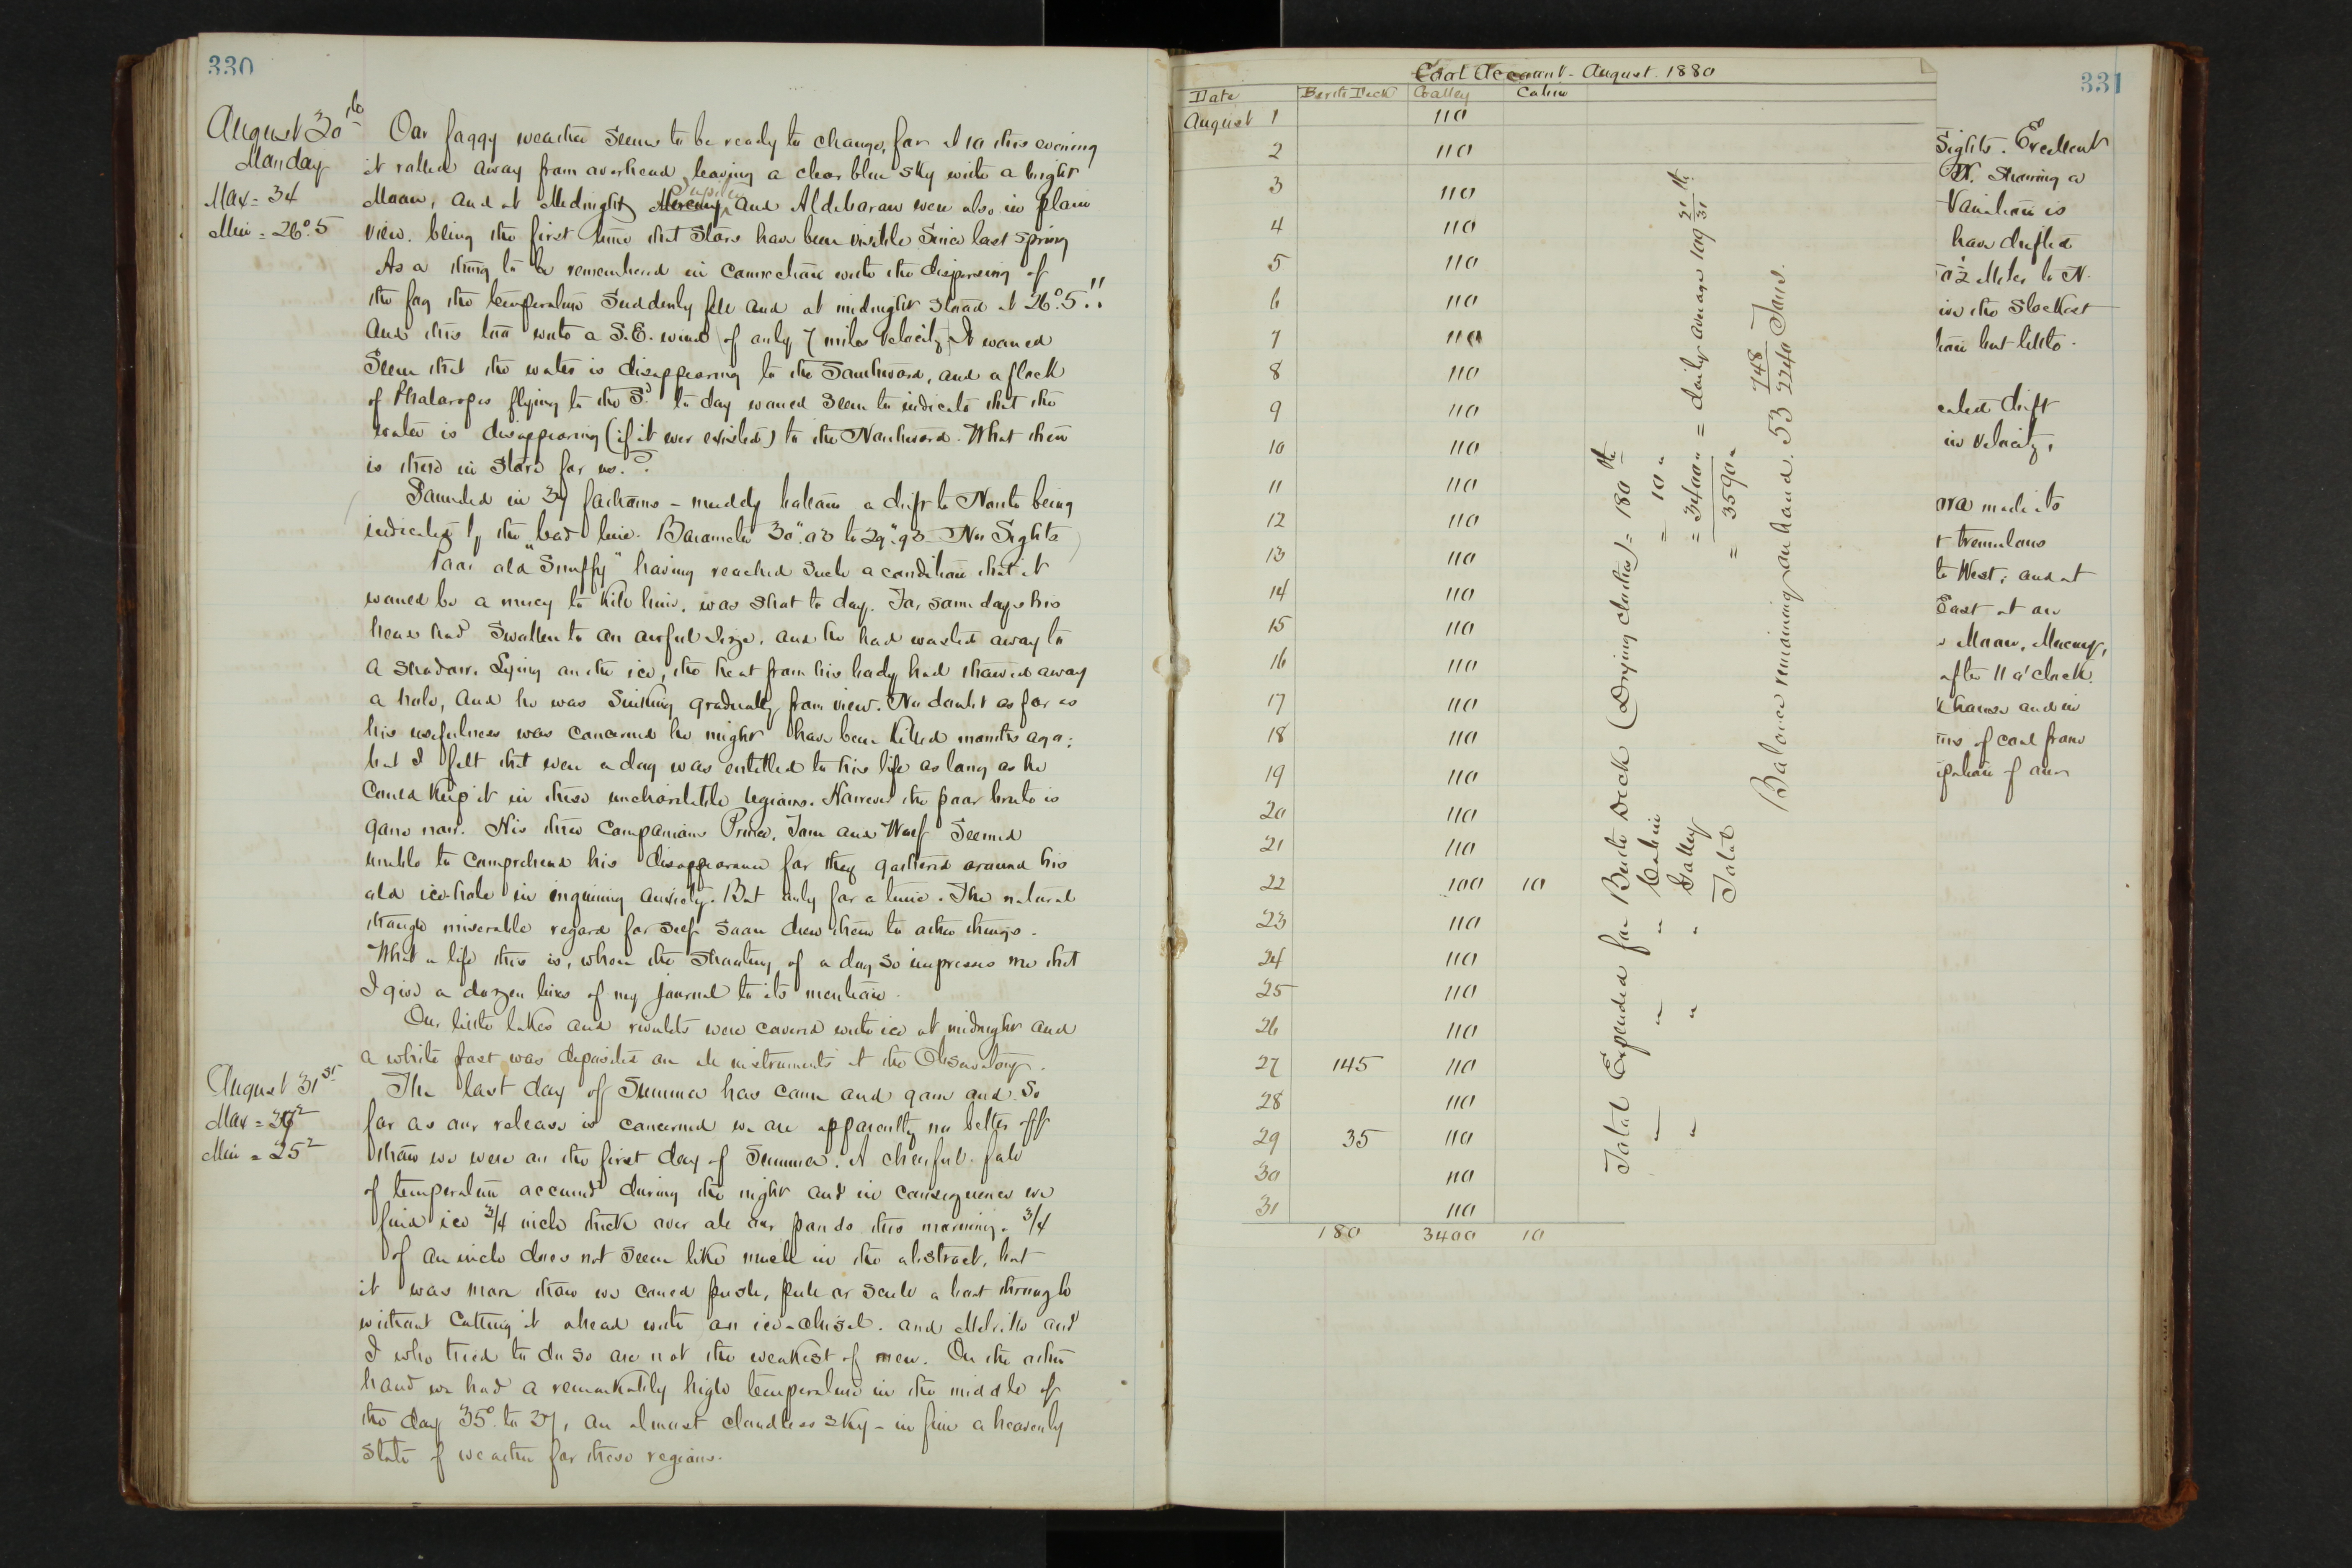 330
August 30th
Monday
Max = 34
Min = 26°.5
Our foggy weather seems to be ready to change, for at 10 this evening
it rolled away from overhead leaving a clear blue sky with a bright
Moon, and at Midnight Mercury Jupiter and Aldebaran were also in plain
view. being the first time that stars have been visible since last spring
As a thing to be remembered in connection with the dispersing of
the fog the temperature suddenly fell and at midnight stood at 26°.5!!
And this too with a S.E. wind of only 7 miles velocity. It would
seem that the water is disappearing to the Southward, and a flock
of Phalaropes flying to the Sd. to day would seem to indicate that the
water is disappearing (if it ever existed) to the Northward. What then
is there in store for us.?
Sounded in 37 fathoms - muddy bottom a drift to North being
indicated by the lead line. Barometer 30".03 to 29".93 - No Sights
Poor old "Snuffy" having reached such a condition that it
would be a mercy to kill him, was shot to day. For some days his
head had swollen to an awful size, and he had wasted away to
a shadow. Lying on the ice, the heat from his body had thawed away
a hole, and he was sinking gradually from view. No doubt as far as
his usefulness was concerned he might have been killed months ago;
but I felt that even a dog was entitled to his life as long as he
could keep it in these uncharitable regions. However the poor brute is
gone now. His three companions Prince, Tom and Wolf seemed
unable to comprehend his disappearance for they gathered around his
old ice-hole in inquiring anxiety. But only for a time. The natural
though miserable regard for self soon drew them to other things.
What a life this is, when the shooting of a dog so impresses me that
I give a dozen lines of my journal to its mention.
Our little lakes and rivulets were covered with ice at midnight and
a white frost was deposited on all instruments at the Observatory.
August 31st
Max = 37²
Min = 25²
The last day of Summer has come and gone and so
far as our release is concerned we are apparently no better off
than we were on the first day of Summer. A cheerful fall
of temperature occurred during the night and in consequence we
find ice 3/4 inch thick over all our ponds this morning. 3/4
of an inch does not seem like much in the abstract, but
it was more than we could push, pull or scull a boat through
without cutting it ahead with an ice-chisel. and Melville and
I who tried to do so are not the weakest of men. On the other
hand we had a remarkably high temperature in the middle of
the day 35° to 37, an almost cloudless sky - in fine a heavenly
state of weather for these regions.
Coal Account - August 1880
Date Berth Deck Galley Cabin
August 1 110
2 110
3 110
4 110
5 110
6 110
7 110
8 110
9 110
10 110
11 110
12 110
13 110
14 110
15 110
16 110
17 110
18 110
19 110
20 110
21 110
22 100 10
23 110
24 110
25 110
26 110
27 145 110
28 110
29 35 110
30 110
31 110
180 3400 10
Total Expended for Berth Deck (Drying clothes) = 180 lbs
" " " Cabin = 10 "
" " " Galley = 3400 " = daily average 109 21/31 lbs.
Total = 3590 "
Balance remaining on hand. 53 748/2240 Tons.
331
Sights. Excellent
N. Showing a
Variation is
have drifted
0½ Miles to N.
in the slackest
tion but little.
cated drift
in velocity.
ora made its
t tremulous
to West; and at
East at an
Moon, Mercury,
after 11 o'clock.
chance and in
ms of coal from
ipation of our